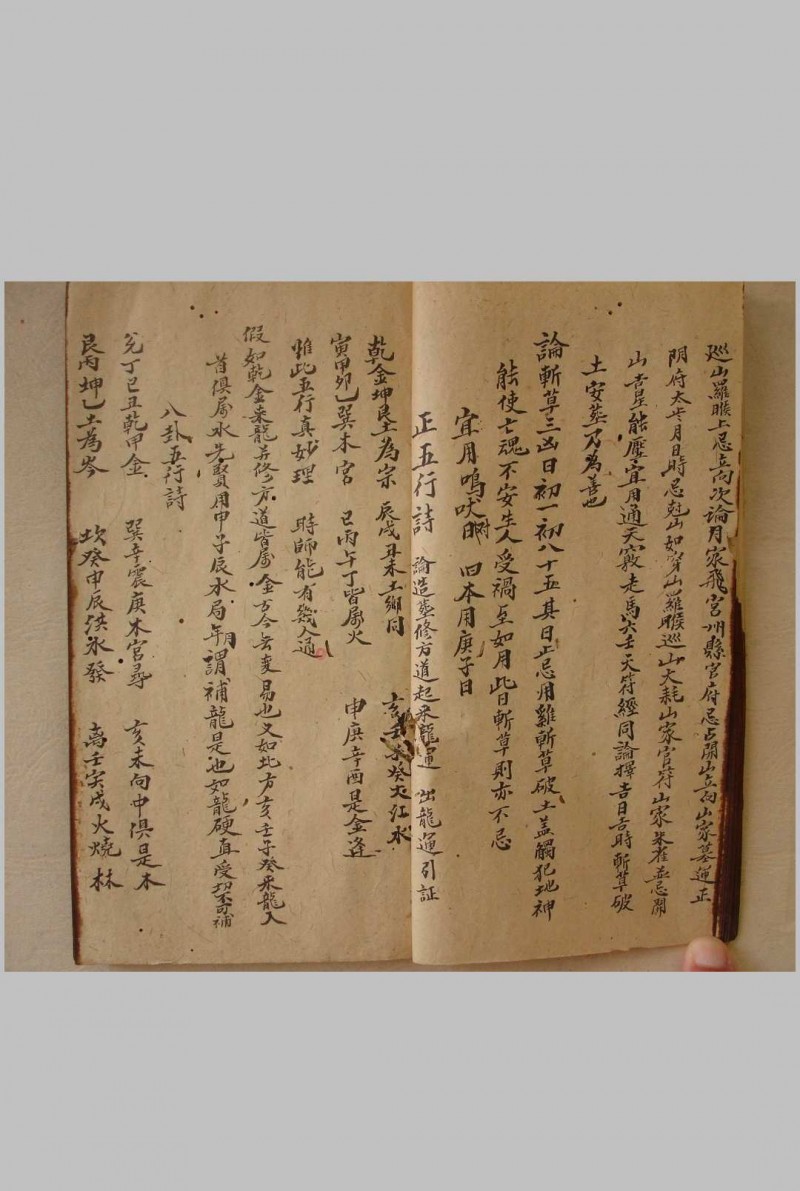 巡山羅睺上忌立向次論月家飛宮州縣官府忌占開山立向山家墓運正
陰府太歲月日時忌尅山如穿山羅睺巡山大耗山家官符山家朱雀並忌開
山吉星能壓宜用通天竅走馬六壬天符經同論擇吉日吉時斬草破
土安葬乃為善也
論斬草三凶日初一初八十五其日正忌用雞斬草破土盖觸犯地神
能使亡魂不安生人受禍至如用此日斬草則亦不忌
宜用鳴吠日 旧本用庚子日
正五行詩 論造葬修方道起來龍運 出龍運引証
乾金坤艮土為宗 辰戌丑未土鄉同 亥壬子癸大江水
寅甲卯乙巽木宮 巳丙午丁皆属火 申庚辛酉是金逢
惟此五行真妙理 時師能有幾人通
假如乾金來龍若修方道皆属金古今無变易也又如北方亥壬子癸來龍入
首俱属水先賢用申子辰水局年月謂補龍是也如龍硬直受補
八卦五行詩
兌丁巳丑乾甲金 巽辛震庚木宮尋 亥未向中俱是木
艮丙坤乙土為岑 坎癸申辰洪水發 离壬寅戌火燒林